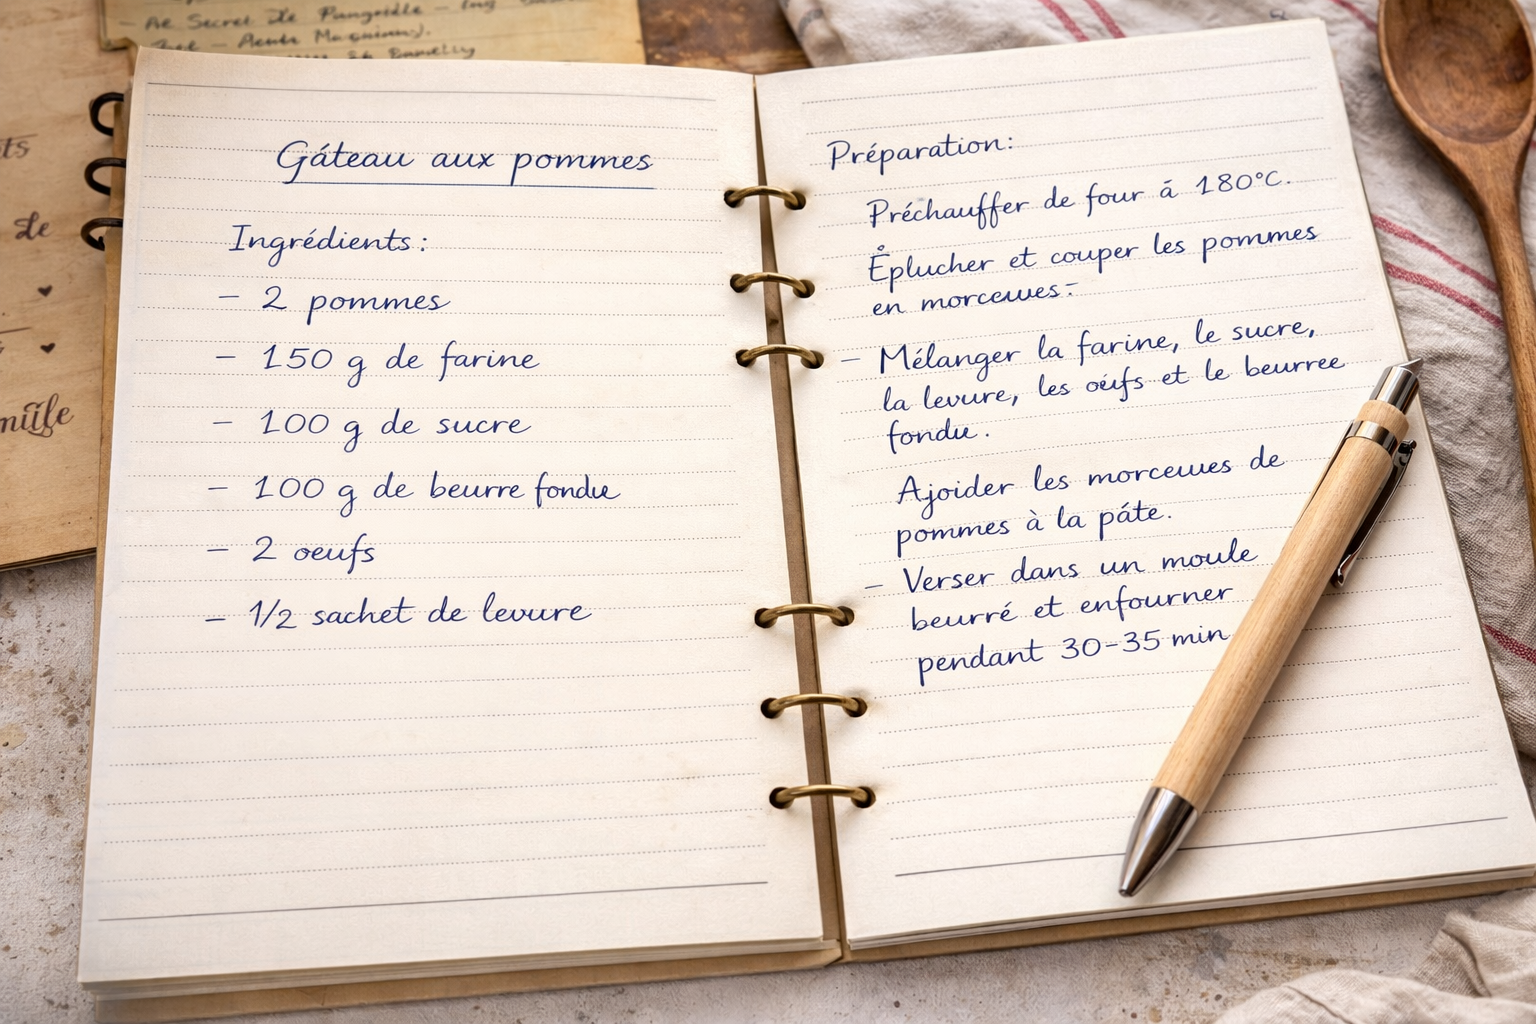 Gáteau aux pommes
Ingrédients:
- 2 pommes
- 150 g de farine
- 100 g de sucre
- 100 g de beurre fondu
- 2 oeufs
- 1/2 sachet de levure
Préparation:
Préchauffer de four á 180°C.
Éplucher et couper les pommes
en morceues:
- Mélanger la farine, le sucre,
la levure, les oéufs et le beurree
fondu.
Ajoider les morceues de
pommes à la páte.
- Verser dans un moule
beurré et enfourner
pendant 30-35 min
de